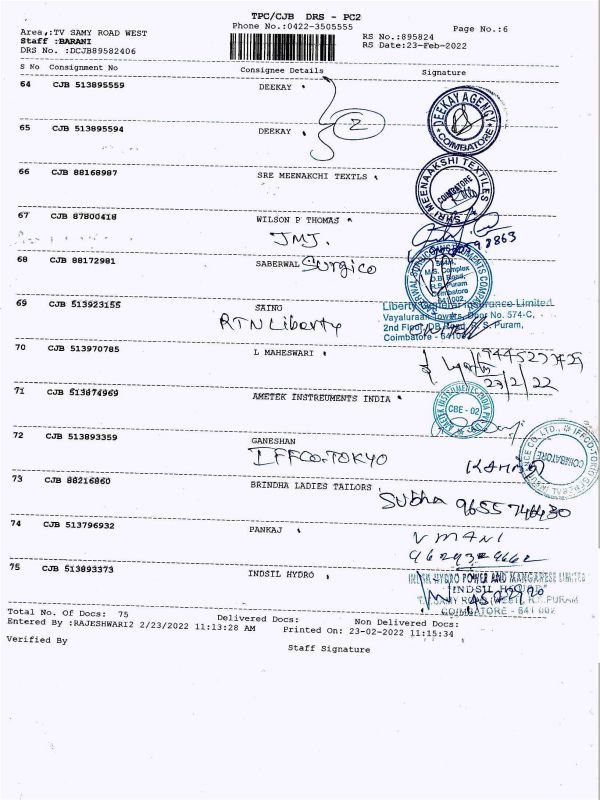 TPC/CJB DRS - PC2
Phone No.:0422-3505555
Page No.:6
Area,:TV SAMY ROAD WEST
Staff :BARANI
DRS No. :DCJB89582406
RS No.:895824
RS Date:23-Feb-2022
S No Consignment No Consignee Details Signature
64 CJB 513895559 DEEKAY
DEEKAY AGENCY COIMBATORE
2
65 CJB 513895594 DEEKAY
66 CJB 88168987 SRE MEENAKCHI TEXTLS
SHRI MEENAAKSHI TEXTILES COIMBATORE
67 CJB 87800418 WILSON P THOMAS
JMJ.
68 CJB 88172981 SABERWAL Surgico
M.S. Complex
D.B. Road,
R.S. Puram
Coimbatore
641 002.
69 CJB 513923155 SAINO
RTN Liberty
Liberty General Insurance Limited
Vayaluraak Towers, Door No. 574-C,
2nd Floor, DB Road, R. S. Puram,
Coimbatore - 641002
70 CJB 513970785 L MAHESWARI
23/2/22
71 CJB 513874969 AMETEK INSTREUMENTS INDIA
CBE - 02
72 CJB 513893359 GANESHAN
IFFCO-TOKYO
COIMBATORE
73 CJB 88216860 BRINDHA LADIES TAILORS
Subha 9655746430
74 CJB 513796932 PANKAJ
V MANI
75 CJB 513893373 INDSIL HYDRO
INDSIL HYDRO POWER AND MANGANESE LIMITED
"INDSIL HOUSE"
T.V. SAMY ROAD (WEST), R.S. PURAM
COIMBATORE - 641 002
Total No. Of Docs: 75 Delivered Docs: Non Delivered Docs:
Entered By :RAJESHWARI2 2/23/2022 11:13:28 AM Printed On: 23-02-2022 11:15:34
Verified By
Staff Signature